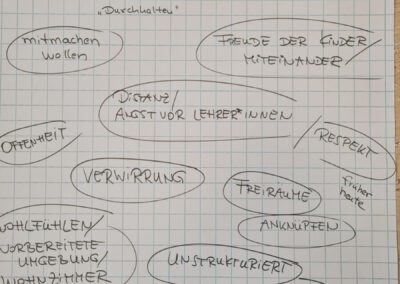 „Durchhalten"
mitmachen
wollen
FREUDE DER KINDER/
MITEINANDER/
DISTANZ/
ANGST VOR LEHRER*INNEN
OFFENHEIT
/ RESPEKT
früher
heute
VERWIRRUNG
FREIRÄUME
ANKNÜPFEN
WOHLFÜHLEN/
VORBEREITETE
UMGEBUNG/
WOHNZIMMER
UNSTRUKTURIERT